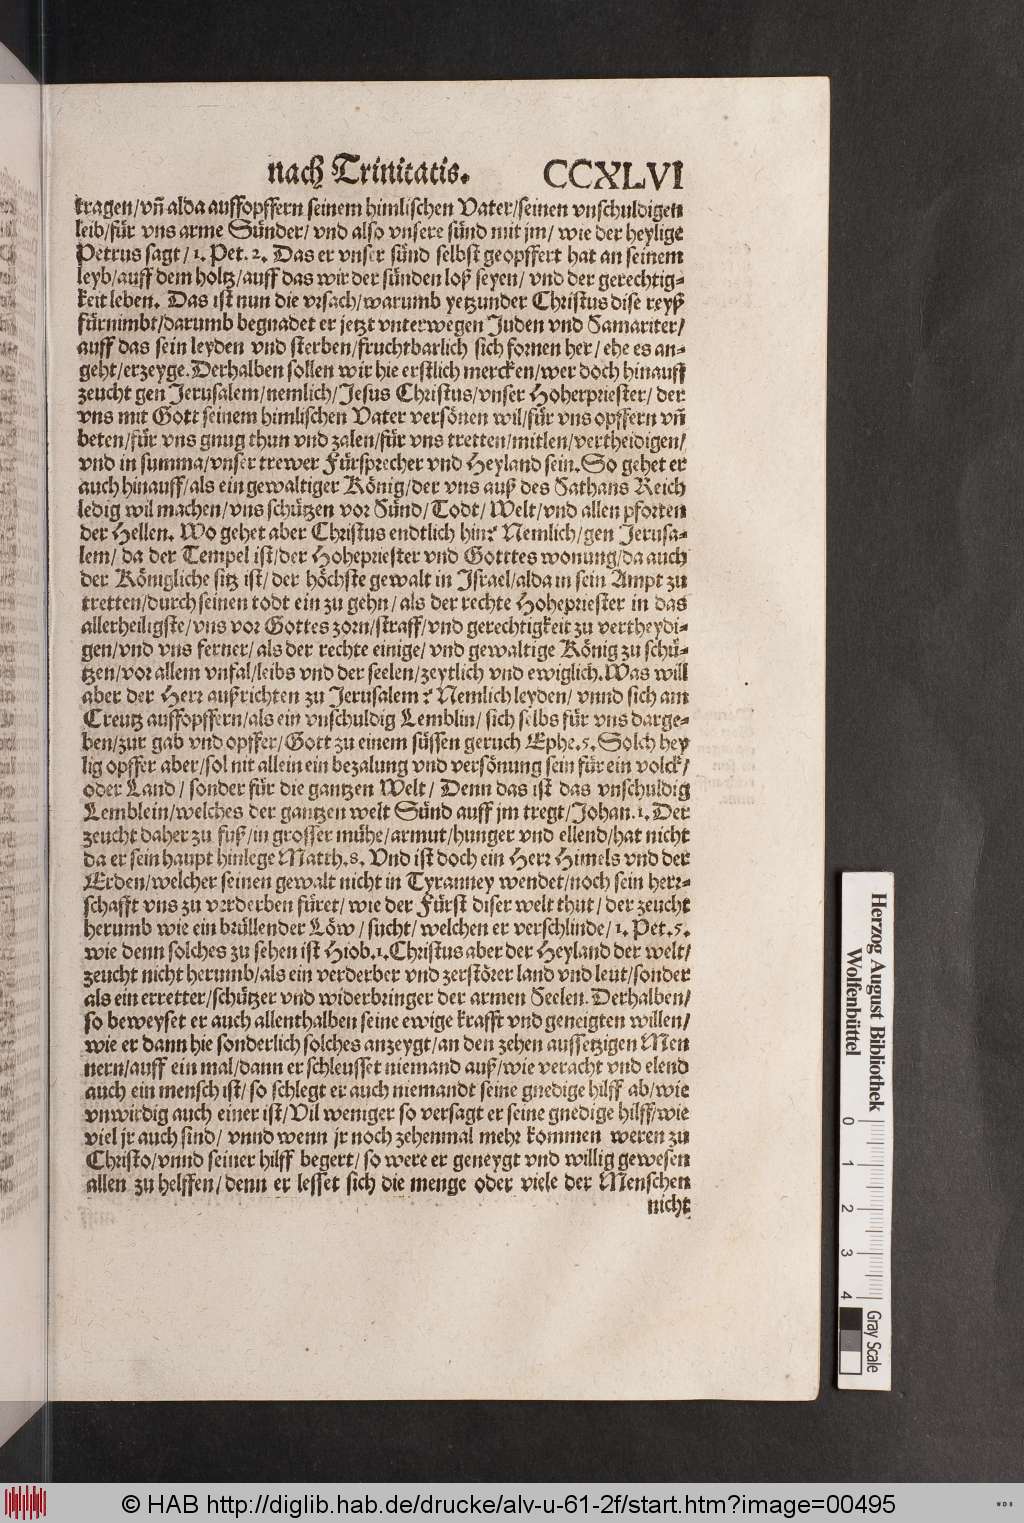 nach Trinitatis. CCXLVI
tragen/vñ alda auffopffern seinem himlischen Vater/seinen vnschuldigen
leib/für vns arme Sünder/ vnd also vnsere sünd mit jm/ wie der heylige
Petrus sagt/ 1. Pet. 2. Das er vnser sünd selbst geopffert hat an seinem
leyb/auff dem holtz/auff das wir der sünden loß seyen/ vnd der gerechtig-
keit leben. Das ist nun die vrsach/warumb yetzunder Christus dise reyß
fürnimbt/darumb begnadet er jetzt vnterwegen Juden vnd Samariter/
auff das sein leyden vnd sterben/fruchtbarlich sich fornen her/ ehe es an-
geht/erzeyge. Derhalben sollen wir hie erstlich mercken/wer doch hinauff
zeucht gen Jerusalem/nemlich/Jesus Christus/vnser Hoherpriester/ der
vns mit Gott seinem himlischen Vater versönen wil/für vns opffern vñ
beten/für vns gnug thun vnd zalen/für vns tretten/mitlen/vertheidigen/
vnd in summa/vnser trewer Fürsprecher vnd Heyland sein. So gehet er
auch hinauff/als ein gewaltiger König/der vns auß des Sathans Reich
ledig wil machen/vns schützen vor Sünd/Todt/ Welt/vnd allen pforten
der Hellen. Wo gehet aber Christus endtlich hin? Nemlich/gen Jerusa-
lem/ da der Tempel ist/der Hohepriester vnd Gotttes wonung/da auch
der Königliche sitz ist/ der höchste gewalt in Israel/alda in sein Ampt zu
tretten/durch seinen todt ein zu gehn/ als der rechte Hohepriester in das
allerheiligste/vns vor Gottes zorn/straff/vnd gerechtigkeit zu vertheydi-
gen/vnd vns ferner/ als der rechte einige/ vnd gewaltige König zu schü-
tzen/vor allem vnfal/leibs vnd der seelen/zeytlich vnd ewiglich. Was will
aber der Herr außrichten zu Jerusalem? Nemlich leyden/ vnnd sich am
Creutz auffopffern/als ein vnschuldig Lemblin/ sich selbs für vns darge-
ben/zur gab vnd opffer/Gott zu einem süssen geruch Ephe. 5. Solch hey
lig opffer aber/sol nit allein ein bezalung vnd versönung sein für ein volck/
oder Land/ sonder für die gantzen Welt/ Denn das ist das vnschuldig
Lemblein/welches der gantzen welt Sünd auff jm tregt/Johan. 1. Der
zeucht daher zu fuß/in grosser mühe/armut/hunger vnd ellend/hat nicht
da er sein haupt hinlege Matth. 8. Vnd ist doch ein Herr Himels vnd der
Erden/welcher seinen gewalt nicht in Tyranney wendet/noch sein herr-
schafft vns zu verderben füret/ wie der Fürst diser welt thut/ der zeucht
herumb wie ein brüllender Löw/ sucht/ welchen er verschlinde/ 1. Pet. 5.
wie denn solches zu sehen ist Hiob. 1. Christus aber der Heyland der welt/
zeucht nicht herumb/als ein verderber vnd zerstörer land vnd leut/sonder
als ein erretter/schützer vnd widerbringer der armen Seelen. Derhalben/
so beweyset er auch allenthalben seine ewige krafft vnd geneigten willen/
wie er dann hie sonderlich solches anzeygt/an den zehen aussetzigen Men
nern/auff ein mal/dann er schleusset niemand auß/wie veracht vnd elend
auch ein mensch ist/ so schlegt er auch niemandt seine gnedige hilff ab/wie
vnwirdig auch einer ist/Vil weniger so versagt er seine gnedige hilff/wie
viel jr auch sind/ vnnd wenn jr noch zehenmal mehr kommen weren zu
Christo/vnnd seiner hilff begert/ so were er geneygt vnd willig gewesen
allen zu helffen/denn er lesset sich die menge oder viele der Menschen
nicht
Herzog August Bibliothek
Wolfenbüttel
0 1 2 3 4
Gray Scale
© HAB http://diglib.hab.de/drucke/alv-u-61-2f/start.htm?image=00495